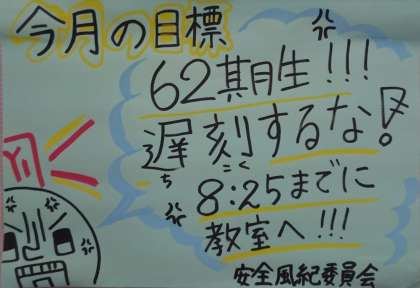 今月の目標
62期生!!!
遅刻するな!
ちこく
8:25までに
教室へ!!!
安全風紀委員会